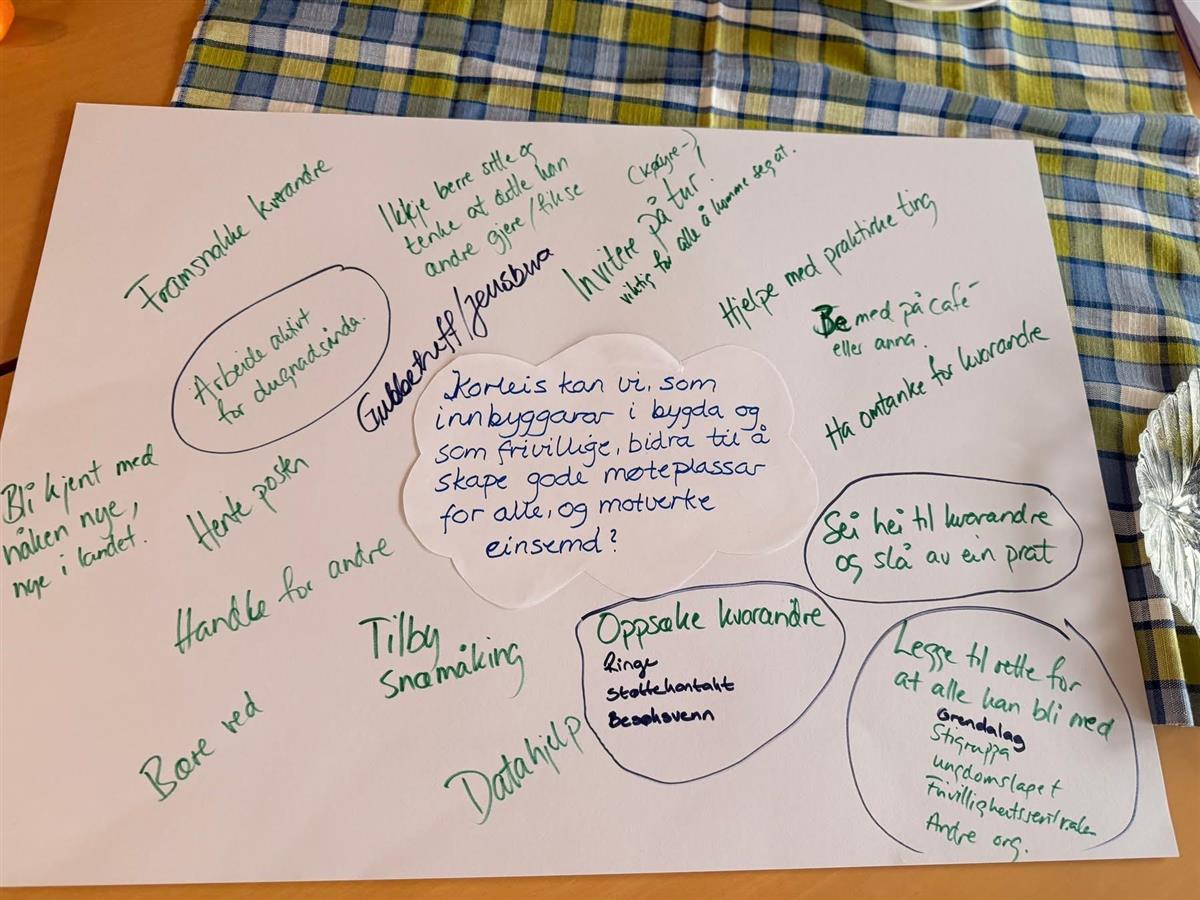 Framsnakke kvarandre
Ikkje berre sitte og
tenke at dette kan
andre gjere / fikse
(Køyre-)
Invitere på tur!
viktig for alle å komme seg ut.
Hjelpe med praktiske ting
Be med på café
eller anna.
Ha omtanke for kvarandre
Arbeide aktivt
for dugnadsånda.
Gubbetreff/Jensbua
Korleis kan vi, som
innbyggarar i bygda og
som frivillige, bidra til å
skape gode møteplassar
for alle, og motverke
einsemd?
Bli kjent med
nåken nye,
nye i landet.
Hente posten
Handle for andre
Tilby
snømåking
Bære ved
Datahjelp
Oppsøke kvarandre
Ringe
Støttekontakt
Besøksvenn
Sei hei til kvarandre
og slå av ein prat
Legge til rette for
at alle kan bli med
Grendalag
Stigruppa
ungdomslaget
Frivillighetssentralen
Andre org.